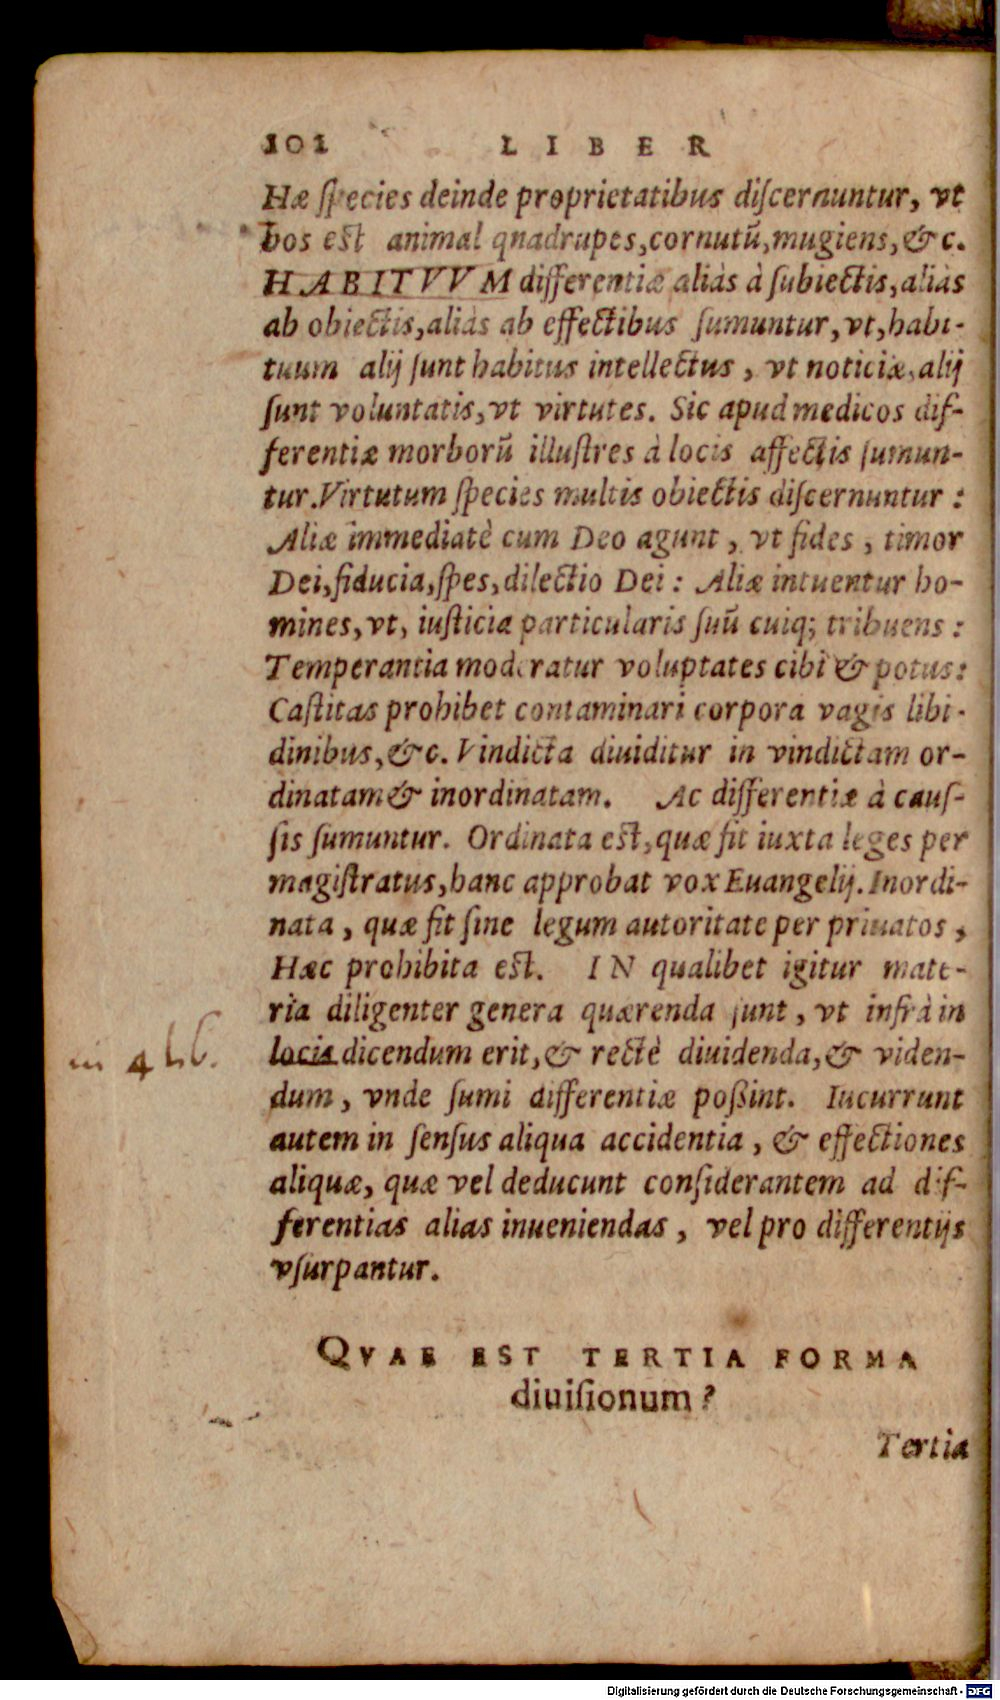 101 LIBER
Hæ ſpecies deinde proprietatibus diſcernuntur, vt
bos eſt animal qnadrupes, cornutũ, mugiens, & c.
HABITVVM differentiæ aliàs à ſubiectis, aliàs
ab obiectis, aliàs ab effectibus ſumuntur, vt, habi-
tuum alij ſunt habitus intellectus, vt noticiæ, alij
ſunt voluntatis, vt virtutes. Sic apud medicos dif-
ferentiæ morborũ illuſtres à locis affectis ſumun-
tur. Virtutum ſpecies multis obiectis diſcernuntur :
Aliæ immediatè cum Deo agunt, vt fides, timor
Dei, fiducia, ſpes, dilectio Dei : Aliæ intuentur ho-
mines, vt, iuſticia particularis ſuũ cuiq; tribuens :
Temperantia moderatur voluptates cibi & potus:
Caſtitas prohibet contaminari corpora vagis libi-
dinibus, & c. Vindicta diuiditur in vindictam or-
dinatam & inordinatam. Ac differentiæ à cauſ-
ſis ſumuntur. Ordinata eſt, quæ fit iuxta leges per
magiſtratus, hanc approbat vox Euangelij. Inordi-
nata, quæ fit ſine legum autoritate per priuatos,
Hæc prohibita eſt. IN qualibet igitur mate-
ria diligenter genera quærenda ſunt, vt infrà in
in 4 lib. locis dicendum erit, & rectè diuidenda, & viden-
dum, vnde ſumi differentiæ poßint. Iucurrunt
autem in ſenſus aliqua accidentia, & effectiones
aliquæ, quæ vel deducunt conſiderantem ad dif-
ferentias alias inueniendas, vel pro differentijs
vſurpantur.
QVAE EST TERTIA FORMA
diuiſionum?
Tertia
Digitalisierung gefördert durch die Deutsche Forschungsgemeinschaft - DFG